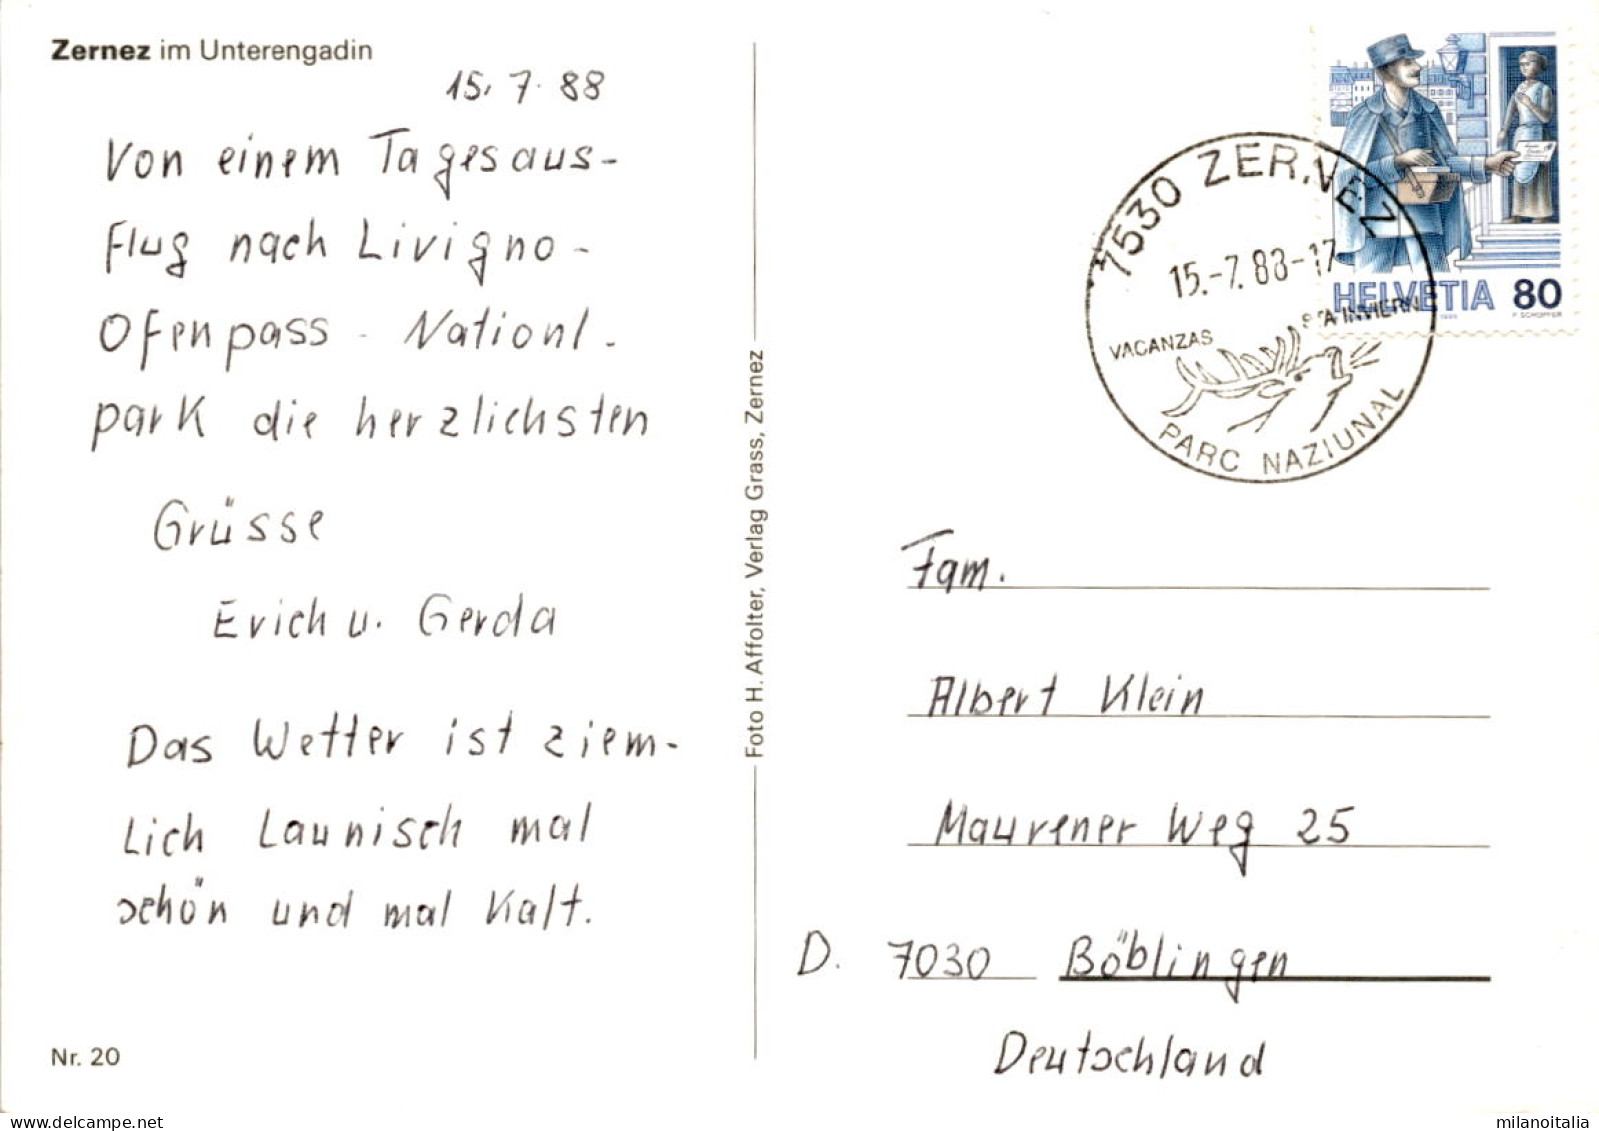 Zernez im Unterengadin
15.7.88
Von einem Tagesaus-
flug nach Livigno -
Ofenpass - Nationl.
park die herzlichsten
Grüsse
Erich u. Gerda
Das Wetter ist ziem-
lich Launisch mal
schön und mal kalt.
Nr. 20
Foto H. Affolter, Verlag Grass, Zernez
HELVETIA 80
7530 ZERNEZ
15.-7.88-17
VACANZAS
PARC NAZIUNAL
Fam.
Albert Klein
Maurener Weg 25
D. 7030 Böblingen
Deutschland
milanoitalia